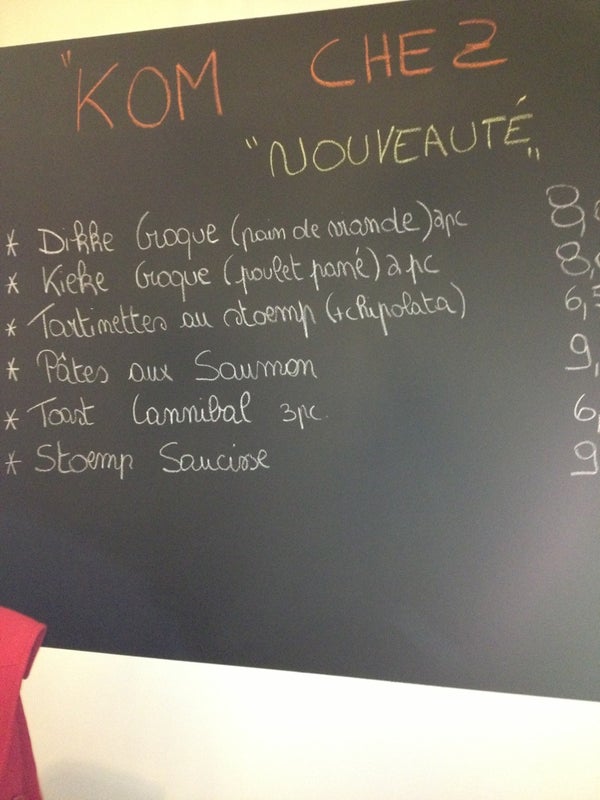 "KOM CHEZ
"NOUVEAUTÉ"
* Dikke Croque (pain de viande) 2pc 8,
* Kieke Croque (poulet pané) 2 pc 8,
* Tartinettes au stoemp (+chipolata) 6,5
* Pâtes aux Saumon 9,
* Toast Cannibal 3pc. 6,
* Stoemp Saucisse 9